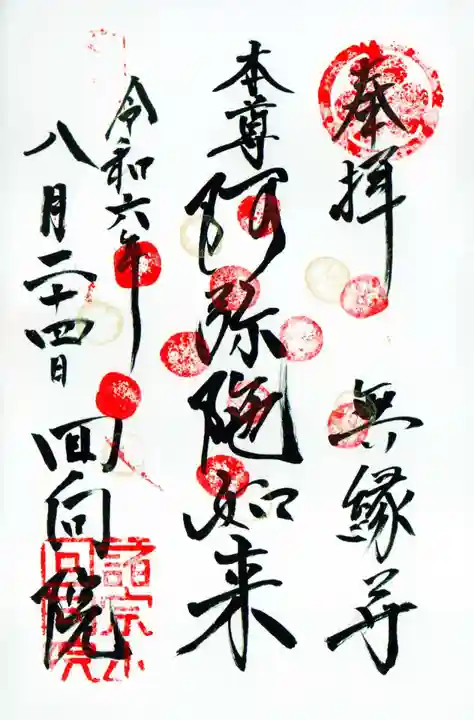 奉拝 無縁寺
本尊 阿弥陀如来
令和六年
八月二十四日 回向院
諸宗山
回向院